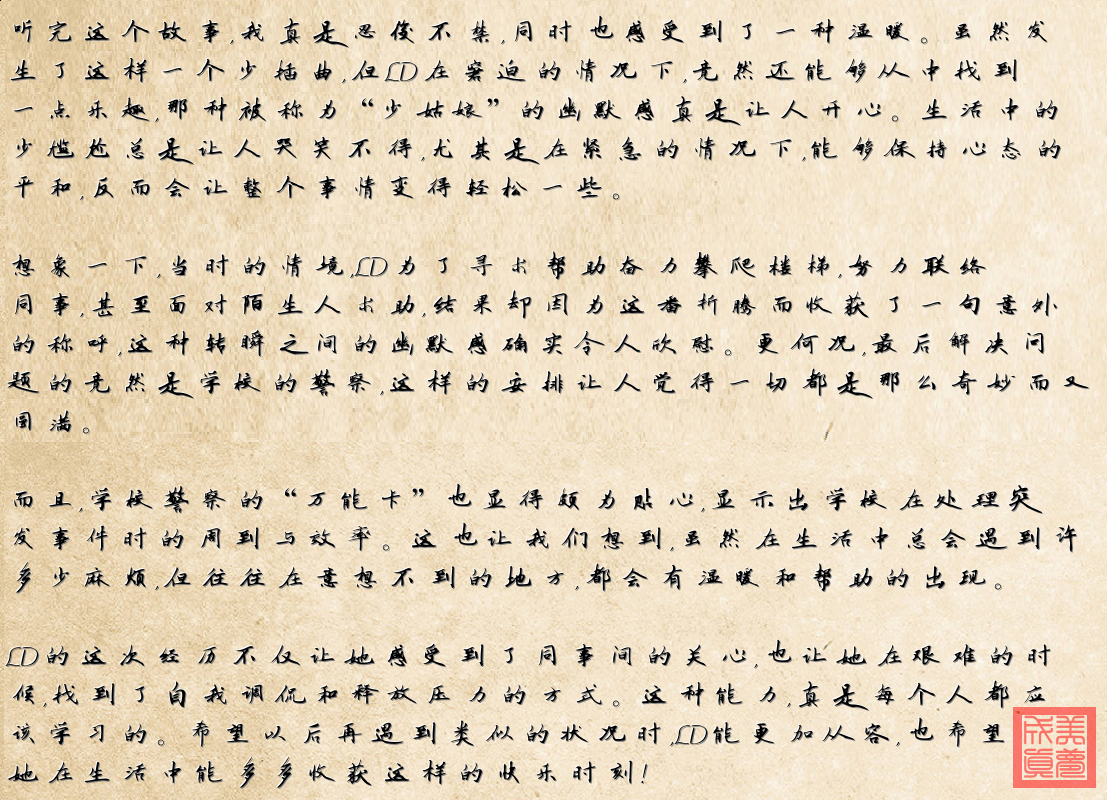 听完这个故事,我真是忍俊不禁,同时也感受到了一种温暖。虽然发
生了这样一个少插曲,但LD在窘迫的情况下,竟然还能够从中找到
一点乐趣,那种被称为“少姑娘”的幽默感真是让人开心。生活中的
少尴尬总是让人哭笑不得,尤其是在紧急的情况下,能够保持心态的
平和,反而会让整个事情变得轻松一些。
想象一下,当时的情境,LD为了寻求帮助奋力攀爬楼梯,努力联络
同事,甚至面对陌生人求助,结果却因为这番折腾而收获了一句意外
的称呼,这种转瞬之间的幽默感确实令人欣慰。更何况,最后解决问
题的竟然是学校的警察,这样的安排让人觉得一切都是那么奇妙而又
圆满。
而且,学校警察的“万能卡”也显得颇为贴心,显示出学校在处理突
发事件时的周到与效率。这也让我们想到,虽然在生活中总会遇到许
多少麻烦,但往往在意想不到的地方,都会有温暖和帮助的出现。
LD的这次经历不仅让她感受到了同事间的关心,也让她在艰难的时
候,找到了自我调侃和释放压力的方式。这种能力,真是每个人都应
该学习的。希望以后再遇到类似的状况时,LD能更加从容,也希望
她在生活中能多多收获这样的快乐时刻!
美梦成真